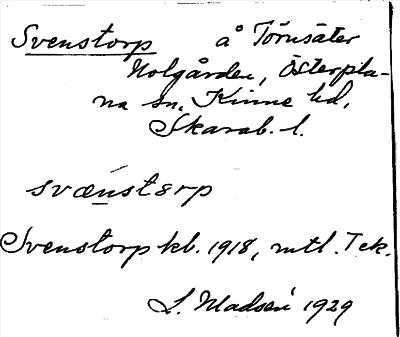 Svenstorp å Törnsäter
Nolgården, Österpla-
na sn, Kinne hd,
Skarab. l.
svænstørp
Svenstorp kb. 1918, mtl. Tek.
L. Madsén 1929